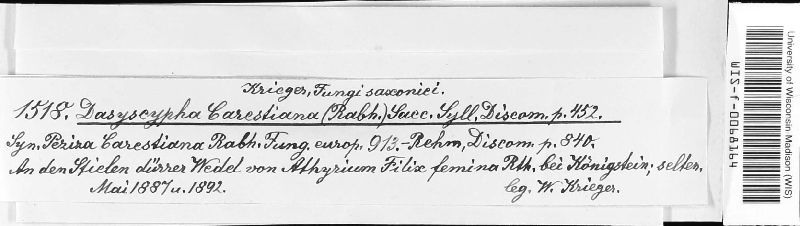 Krieger, Fungi saxonici.
1518. Dasyscypha Carestiana (Rabh.) Sacc. Syll. Discom. p. 452.
Syn. Peziza Carestiana Rabh. Fung. europ. 913.-Rehm, Discom. p. 840.
An den Stielen dürrer Wedel von Athyrium Filix femina Rth. bei Königstein; selten.
Mai 1887 u. 1892. leg. W. Krieger.
University of Wisconsin Madison (WIS)
WIS-f-0068164